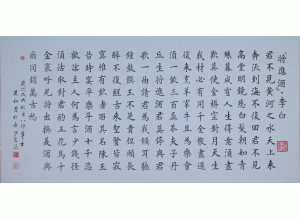 "將進酒"·李白
君不見黃河之水天上來
奔流到海不復回君不見
高堂明鏡悲白髮朝如青
絲暮成雪人生得意須盡
歡莫使金樽空對月天生
我材必有用千金散盡還
復來烹羊宰牛且為樂會
須一飲三百杯岑夫子丹
丘生將進酒君莫停與君
歌一曲請君為我傾耳聽
鐘鼓饌玉不足貴但願長
醉不復醒古來聖賢皆寂
寞惟有飲者留其名陳王
昔時宴平樂斗酒十千恣
歡謔主人何為言少錢徑
須沽取對君酌五花馬千
金裘呼兒將出換美酒與
爾同銷萬古愁